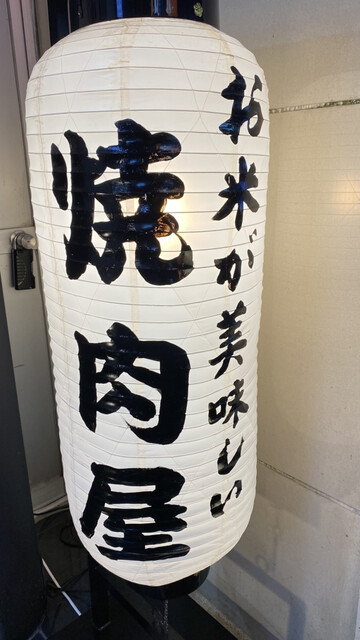 お米が美味しい
焼肉屋